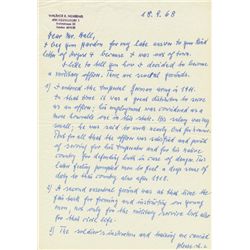 WALTHER K. NEHRING
4000 DÜSSELDORF
18.9.68
Dear Mr. Hall,
I beg your pardon for my late answer to your kind
letter of August because I was out of town.
I like to tell you how I decided to become
a military officer. There are several periods.
1) I entered the Imperial German army in 1911.
In that time it was a great distinction to serve
as an officer; his employment was considered as a
more honorable one in his state. His salary was very
small, he was said to work nearly and for honor.
But for all that the officer was satisfied and proud
of serving for his Emperor and for his native
country for defending both in case of danger. This
Labor feeling prompted men to feel a deep sense of
duty to this country also after 1918.
2) A second essential period was at that time the
fair task for forming and instructing our young
men, not only for the military service but also
for their civil life.
3) The soldier's instruction and training was carried
please t. o.